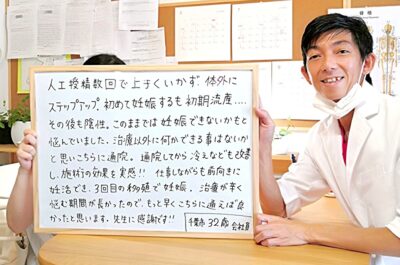 人工授精数回で上手くいかず、体外に
ステップアップ。初めて妊娠するも初期流産....
その後も陰性。このままでは妊娠できないかもと
悩んでいました。治療以外に何かできる事はないか
と思いこちらに通院。通院してから冷えなども改善
し、施術の効果を実感!! 仕事しながらも前向きに
妊活でき、3回目の移植で妊娠。治療が辛く
悩む期間が長かったので、もっと早くこちらに通えば良
かったと思います。先生に感謝です!!
千葉市 32歳 会社員